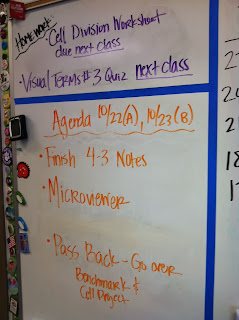 Homework:
· Cell Division Worksheet
due next class
· Visual Terms #3 Quiz next class
Agenda 10/22(A), 10/23(B)
· Finish 4-3 Notes
· Microviewer
· Pass Back - Go over
Benchmark &
Cell Project